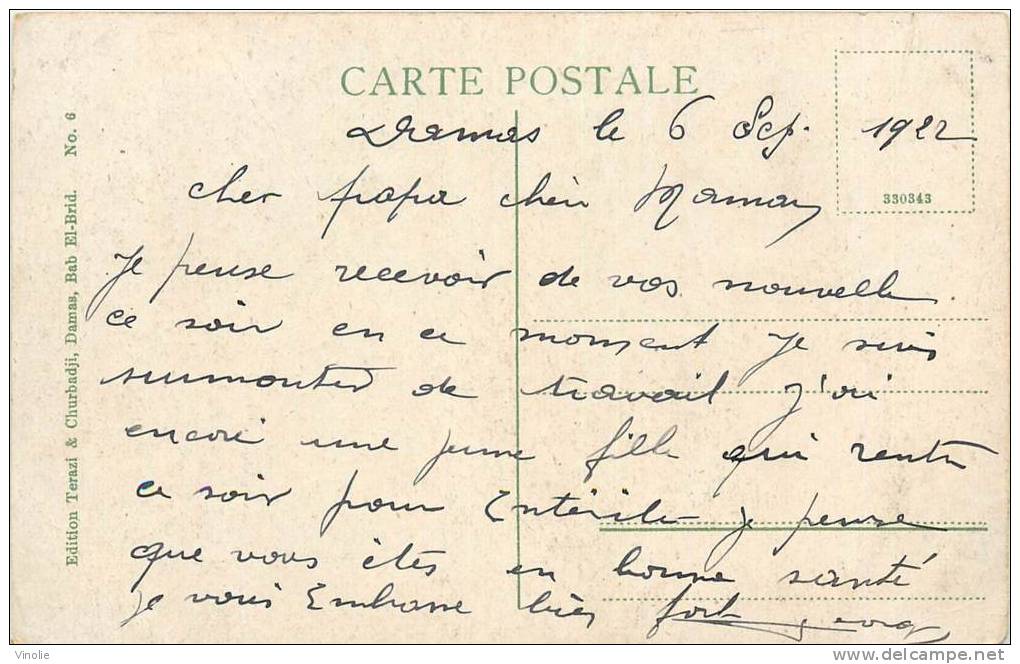 CARTE POSTALE
Damas le 6 Sep. 1922
cher papa cher Maman
Je pense recevoir de vos nouvelle
ce soir en ce moment je suis
surmonter de travail j'ai
encore une jeune fille qui rentre
ce soir pour je pense
que vous êtes en bonne santé
je vous Embrasse bien fort
330343
Edition Terazi & Churbadji, Damas, Bab El-Brid. No. 6
Vinolie
delcampe.net